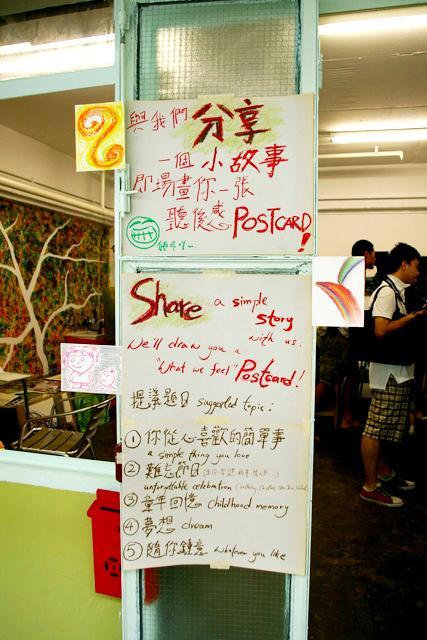 與我們 分享
一個 小故事
即場畫你一張
聽後感 POSTCARD!
Share a simple
story
with us.
We'll draw you a
"what we feel" Postcard!
提議題目 suggested topic:
① 你從心喜歡的簡單事
a simple thing you love
② 難忘節日
unforgettable celebration
③ 童年回憶 childhood memory
④ 夢想 dream
⑤ 隨你鍾意 whatever you like